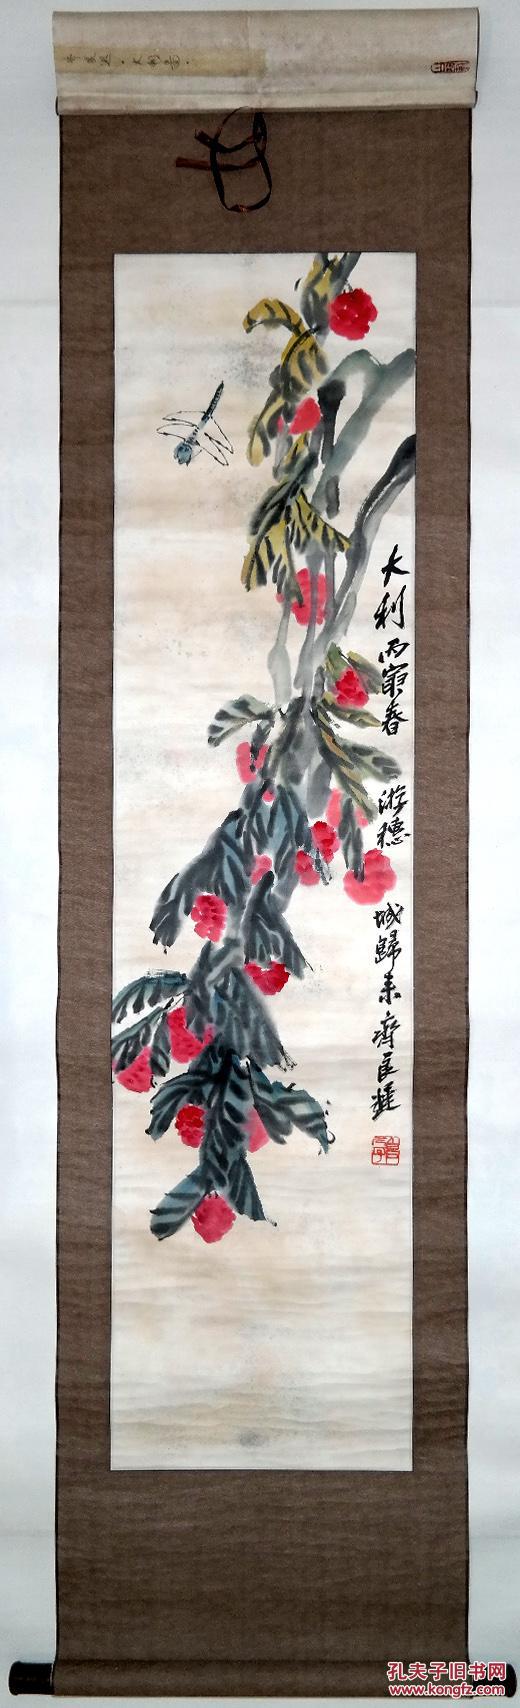 大利 丙寅春 游穗城歸來 齊良遲
齊良遲·大利圖·
孔夫子旧书网
www.kongfz.com